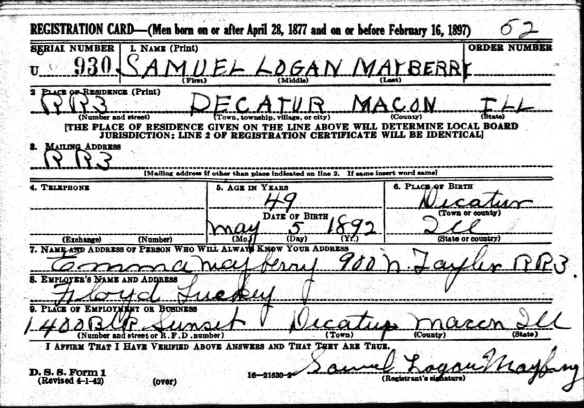 REGISTRATION CARD—(Men born on or after April 28, 1877 and on or before February 16, 1897) 52
SERIAL NUMBER 1. NAME (Print) ORDER NUMBER
U 930 SAMUEL LOGAN MAYBERRY
(First) (Middle) (Last)
2 PLACE OF RESIDENCE (Print)
RR3 DECATUR MACON ILL
(Number and street) (Town, township, village, or city) (County) (State)
[THE PLACE OF RESIDENCE GIVEN ON THE LINE ABOVE WILL DETERMINE LOCAL BOARD
JURISDICTION; LINE 2 OF REGISTRATION CERTIFICATE WILL BE IDENTICAL]
3. MAILING ADDRESS
RR3
[Mailing address if other than place indicated on line 2. If same insert word same]
4. TELEPHONE 5. AGE IN YEARS 6. PLACE OF BIRTH
49 Decatur
DATE OF BIRTH (Town or county)
may 5 1892 Ill
(Exchange) (Number) (Mo.) (Day) (Yr.) (State or country)
7. NAME AND ADDRESS OF PERSON WHO WILL ALWAYS KNOW YOUR ADDRESS
Emma Mayberry 900 N. Tayler RR3.
8. EMPLOYER'S NAME AND ADDRESS
Floyd Luckey
9. PLACE OF EMPLOYMENT OR BUSINESS
1400 Blk Sunset Decatur Macon Ill
(Number and street or R. F. D. number) (Town) (County) (State)
I AFFIRM THAT I HAVE VERIFIED ABOVE ANSWERS AND THAT THEY ARE TRUE.
D. S. S. Form 1 Samuel Logan Maybery
(Revised 4-1-42) (over) 16—21630-2 (Registrant's signature)